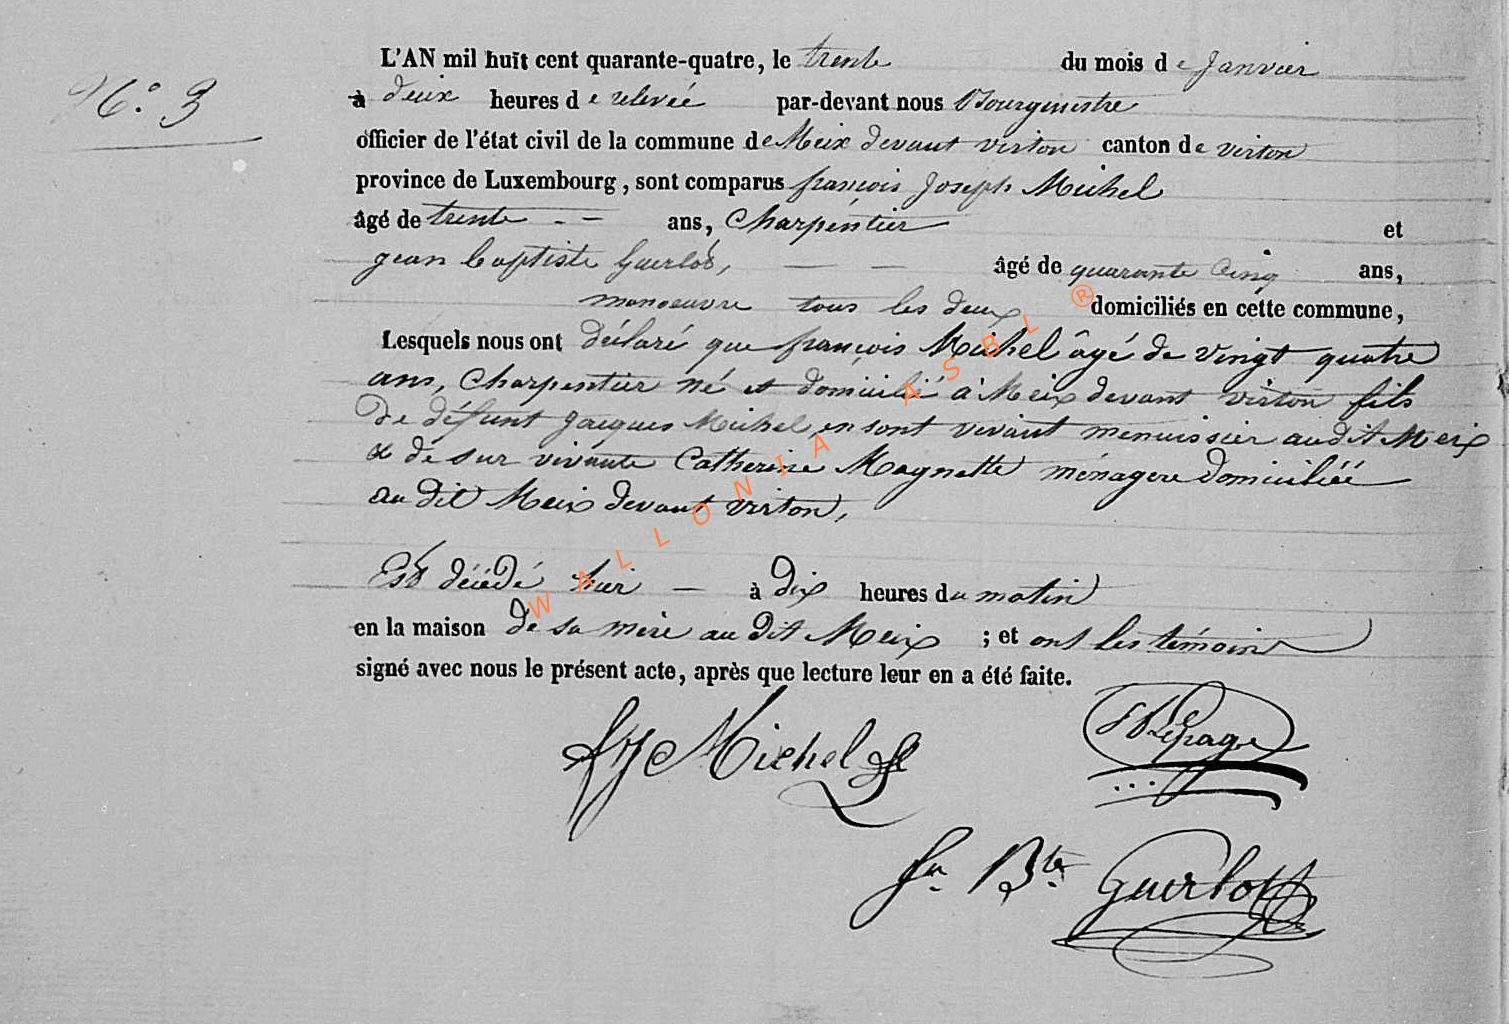 N.° 3
L'AN mil huit cent quarante-quatre, le trente du mois de Janvier
à deux heures de relevée par-devant nous Bourgmestre
officier de l'état civil de la commune de Meix devant virton canton de virton
province de Luxembourg, sont comparus françois Joseph Michel
âgé de trente - - ans, Charpentier et
jean baptiste Guerlot, — — âgé de quarante Cinq ans,
manoeuvre tous les deux domiciliés en cette commune,
Lesquels nous ont déclaré que françois Michel âgé de vingt quatre
ans, Charpentier né et domicilié à Meix devant virton fils
De défunt Jacques Michel, en sont vivant menuissier audit Meix
& de sur vivante Catherine Magnette ménagere domiciliée
au dit Meix devant virton,
Est décédé hier — à Dix heures du matin
en la maison de sa mère au dit Meix ; et ont les témoins
signé avec nous le présent acte, après que lecture leur en a été faite.
Michel
Lepage
Jn. Bte. Guerlot
WALLONIA ASBL ®